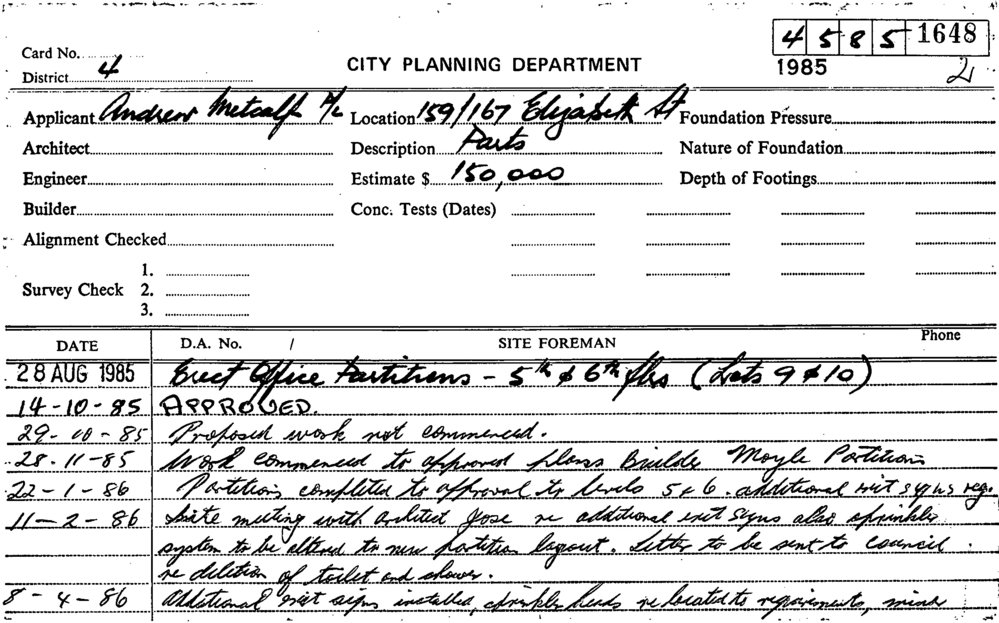 4 5 8 5 1648
Card No.
1985 2
District 4
CITY PLANNING DEPARTMENT
Applicant Andrew Metcalf P/L Location 159/167 Elizabeth St Foundation Pressure
Architect Description Parts Nature of Foundation
Engineer Estimate $ 150,000 Depth of Footings
Builder Conc. Tests (Dates)
Alignment Checked
1.
Survey Check 2.
3.
DATE D.A. No. / SITE FOREMAN Phone
28 AUG 1985 Erect Office Partitions - 5th & 6th flrs (Lots 9 & 10)
14-10-85 APPROVED.
29-10-85 Proposed work not commenced.
28-11-85 Work commenced to approved plans Builder Moyle Partitions
22-1-86 Partitions completed to approval to levels 5 & 6. additional exit signs req.
11-2-86 Site meeting with architect Jose re additional exit signs also sprinkler
system to be altered to new partition layout. Letter to be sent to council.
re deletion of toilet and shower.
8-4-86 Additional exit signs installed, sprinkler heads relocated to requirements, minor